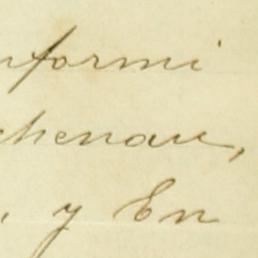 nformi
chenau,
, y En